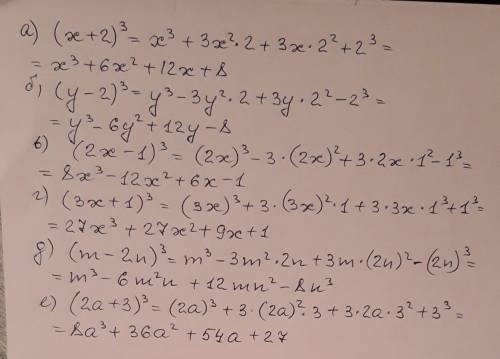 а) (x+2)³ = x³ + 3x²·2 + 3x·2² + 2³ =
= x³ + 6x² + 12x + 8
б) (y-2)³ = y³ - 3y²·2 + 3y·2² - 2³ =
= y³ - 6y² + 12y - 8
в) (2x-1)³ = (2x)³ - 3·(2x)² + 3·2x·1² - 1³ =
= 8x³ - 12x² + 6x - 1
г) (3x+1)³ = (3x)³ + 3·(3x)²·1 + 3·3x·1³ + 1³ =
= 27x³ + 27x² + 9x + 1
д) (m-2n)³ = m³ - 3m²·2n + 3m·(2n)² - (2n)³ =
= m³ - 6m²n + 12mn² - 8n³
е) (2a+3)³ = (2a)³ + 3·(2a)²·3 + 3·2a·3² + 3³ =
= 8a³ + 36a² + 54a + 27